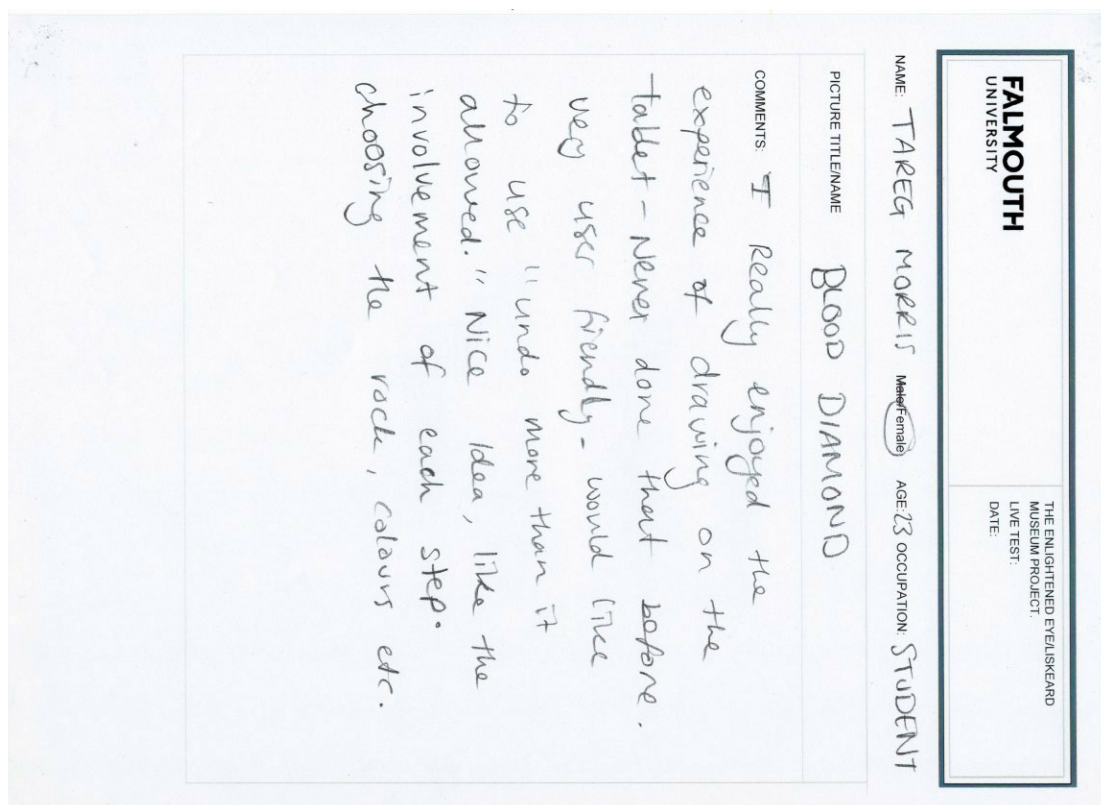 FALMOUTH
UNIVERSITY
THE ENLIGHTENED EYE/LISKEARD
MUSEUM PROJECT.
LIVE TEST:
DATE:
NAME: TAREG MORRIS Male/Female AGE: 23 OCCUPATION: STUDENT
PICTURE TITLE/NAME BLOOD DIAMOND
COMMENTS: I Really enjoyed the
experience of drawing on the
tablet - Never done that before.
very user friendly - would like
to use "undo more than it
allowed." Nice Idea, like the
involvement of each step.
choosing the rock, colours etc.